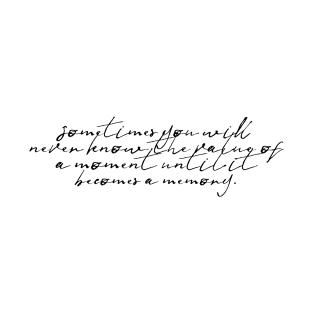 sometimes you will
never know the value of
a moment until it
becomes a memory.